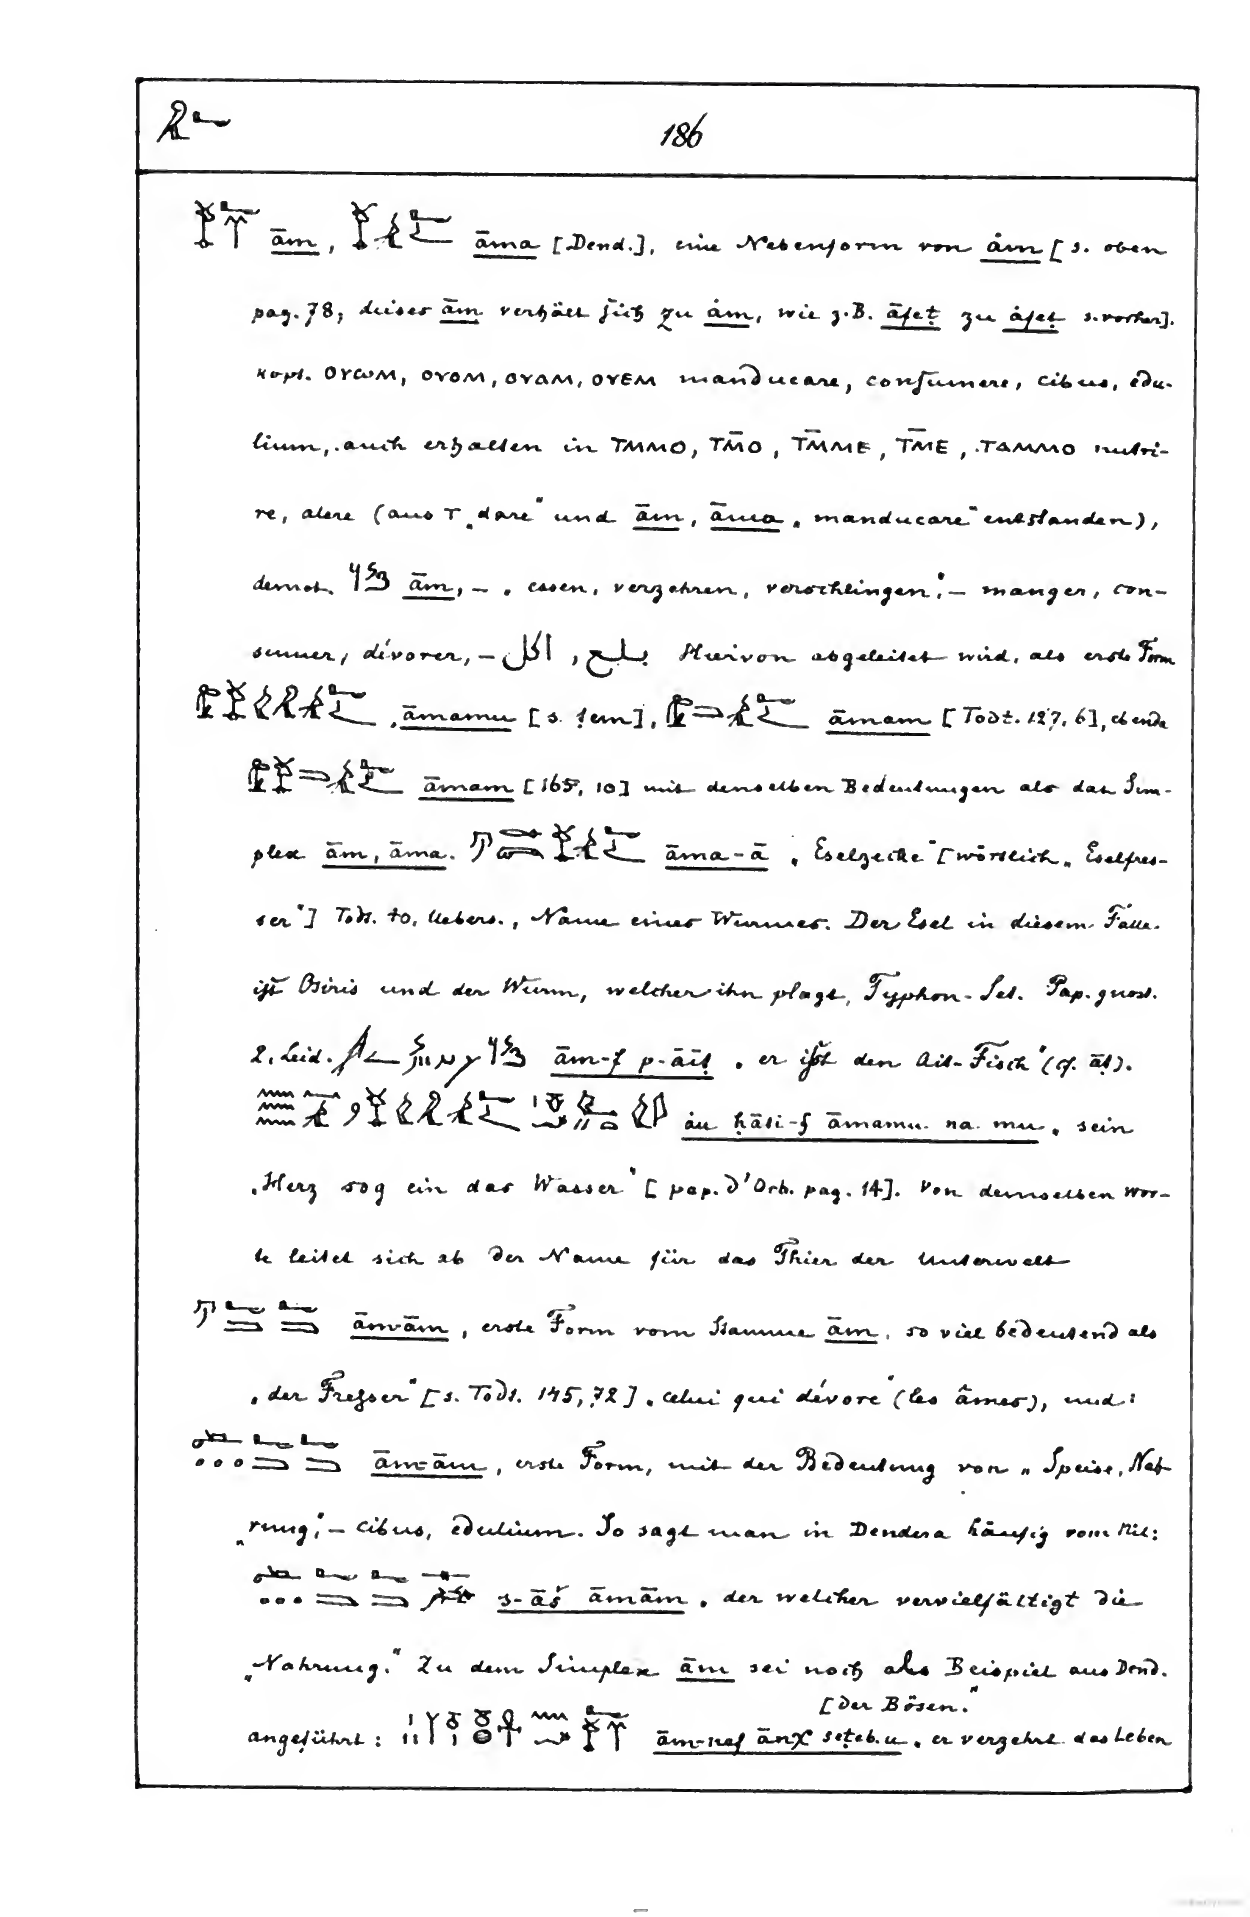 186
ām, āma [Dend.], eine Nebenform von åm [s. oben
pag. 78, dieses ām verhält sich zu åm, wie z.B. āfeṭ zu åfeṭ s. vorher].
kopt. ΟΥⲰΜ, ΟΥΟΜ, ΟΥΑΜ, ΟΥΕΜ manducare, consumere, cibus, edu-
lium, auch erhalten in ΤΜΜΟ, ΤΜ̄Ο, ΤΜ̄ΜΕ, ΤΜ̄Ε, ΤΑΜΜΟ nutri-
re, alere (aus Τ „dare“ und ām, āma „manducare“ entstanden),
demot. ām, – „essen, verzehren, verschlingen“, – manger, con-
sumer, dévorer, – اكل, بلع Hiervon abgeleitet wird, als erste Form
āmamu [s. fem], āmam [Todt. 127, 6], ebenda
āmam [165, 10] mit denselben Bedeutungen als das Sim-
plex ām, āma. āma-ā „Eselzecke“ [wörtlich „Eselfres-
ser“] Todt. 40. Uebers., Name eines Wurmes. Der Esel in diesem Falle
ist Osiris und der Wurm, welcher ihn plagt, Typhon-Set. Pap. gnost.
2. Leid. ām-f p-āiṭ „er ißt den Ait-Fisch“ (cf. āṭ).
åu ḥāti-f āmamu na mu „sein
„Herz sog ein das Wasser“ [pap. d'Orb. pag. 14]. Von demselben Wor-
te leitet sich ab der Name für das Thier der Unterwelt
āmām, erste Form vom Stamme ām, so viel bedeutend als
„der Fresser“ [s. Todt. 145, 72] „celui qui dévore“ (les âmes), und:
ām-ām, erste Form, mit der Bedeutung von „Speise, Nah-
„rung“, – cibus, edulium. So sagt man in Dendera häufig vom Nil:
s-āš āmām „der welcher vervielfältigt die
„Nahrung.“ Zu dem Simplex ām sei noch als Beispiel aus Dend.
[der Bösen.“
angeführt: ām-nef ānχ seṭeb.u „er verzehrt das Leben